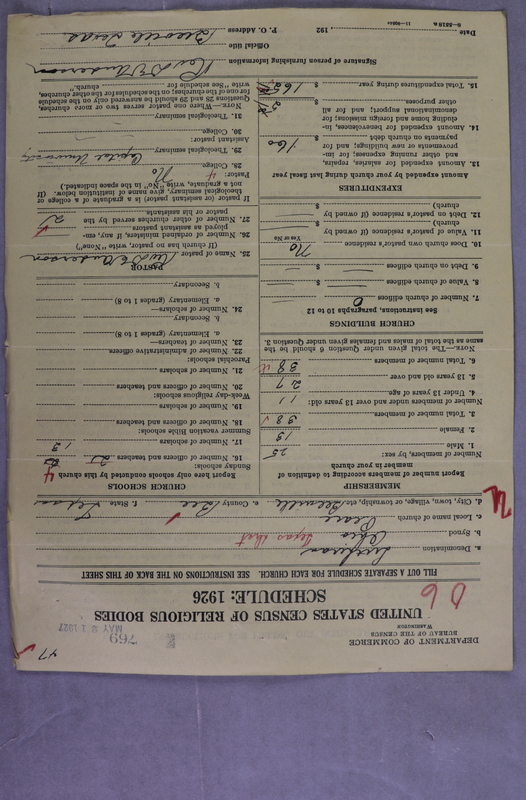 47
DEPARTMENT OF COMMERCE
BUREAU OF THE CENSUS
WASHINGTON
769
MAY 2 1927
UNITED STATES CENSUS OF RELIGIOUS BODIES
SCHEDULE: 1926
FILL OUT A SEPARATE SCHEDULE FOR EACH CHURCH. SEE INSTRUCTIONS ON THE BACK OF THIS SHEET
a. Denomination Lutheran
b. Synod Ohio Texas Dist
c. Local name of church Peace
d. City, town, village, or township, etc. Beeville e. County Bee f. State Texas
MEMBERSHIP
Report number of members according to definition of member in your church
Number of members, by sex:
1. Male 25
2. Female 13
3. Total number of members 38
Number of members under and over 13 years old:
4. Under 13 years of age 11
5. 13 years old and over 27
6. Total number of members 38
NOTE.—The total given under Question 6 should be the same as the total of males and females given under Question 3.
CHURCH BUILDINGS
See instructions, paragraphs 10 to 12
7. Number of church edifices 0
8. Value of church edifices $
9. Debt on church edifices $
10. Does church own pastor's residence No
Yes or No
11. Value of pastor's residence (if owned by church) $
12. Debt on pastor's residence (if owned by church) $
EXPENDITURES
Amount expended by your church during last fiscal year
13. Amount expended for salaries, repairs, and other running expenses; for improvements or new buildings; and for payments on church debt $ 160
14. Amount expended for benevolences, including home and foreign missions; for denominational support; and for all other purposes $
15. Total expenditures during year $
CHURCH SCHOOLS
Report here only schools conducted by this church
Sunday schools:
16. Number of officers and teachers 2
17. Number of scholars 13
Summer vacation Bible schools:
18. Number of officers and teachers
19. Number of scholars
Week-day religious schools:
20. Number of officers and teachers
21. Number of scholars
Parochial schools:
22. Number of administrative officers
23. Number of teachers—
a. Elementary (grades 1 to 8)
b. Secondary
24. Number of scholars—
a. Elementary (grades 1 to 8)
b. Secondary
PASTOR
25. Name of pastor Anderson
(If church has no pastor, write "None")
26. Number of ordained ministers, if any, employed as assistant pastors
27. Number of other churches served by the pastor or his assistants 2
If pastor (or assistant pastor) is a graduate of a college or theological seminary, give name of institution below. (If not a graduate, write "No" in the space indicated.)
Pastor:
28. College No
29. Theological seminary Capital University
Assistant pastor:
30. College
31. Theological seminary
NOTE.—Where one pastor serves two or more churches, Questions 28 and 29 should be answered only on the schedule for one of the churches; on the schedules for the other churches, write "See schedule for church."
Signature of person furnishing information Anderson
Official title
P. O. Address Beeville Texas
Date , 192